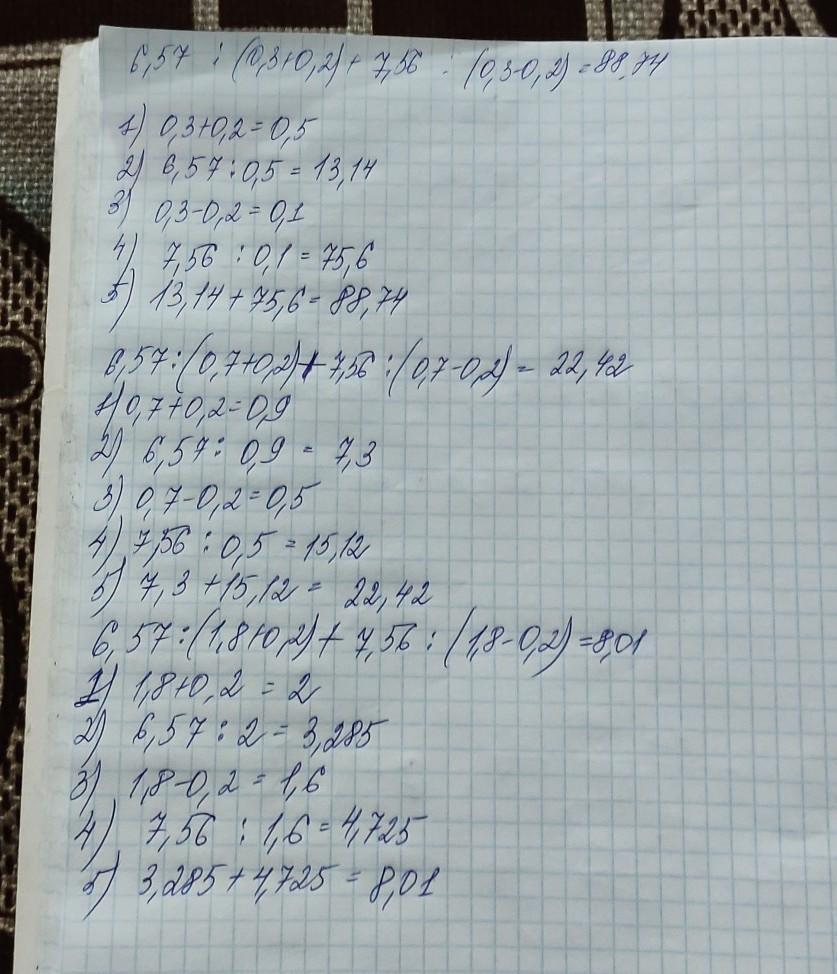 6,57 : (0,3+0,2)+ 7,56 : (0,3-0,2) = 88,74
1) 0,3+0,2=0,5
2) 6,57 : 0,5 = 13,14
3) 0,3-0,2=0,1
4) 7,56 : 0,1 = 75,6
5) 13,14+75,6=88,74
6,57:(0,7+0,2)+7,56:(0,7-0,2) = 22,42
1) 0,7+0,2=0,9
2) 6,57 : 0,9 = 7,3
3) 0,7-0,2=0,5
4) 7,56 : 0,5 = 15,12
5) 7,3 +15,12 = 22,42
6,57:(1,8+0,2)+ 7,56 : (1,8-0,2) =8,01
1) 1,8+0,2 = 2
2) 6,57 : 2 = 3,285
3) 1,8-0,2 = 1,6
4) 7,56 : 1,6 = 4,725
5) 3,285+4,725 = 8,01